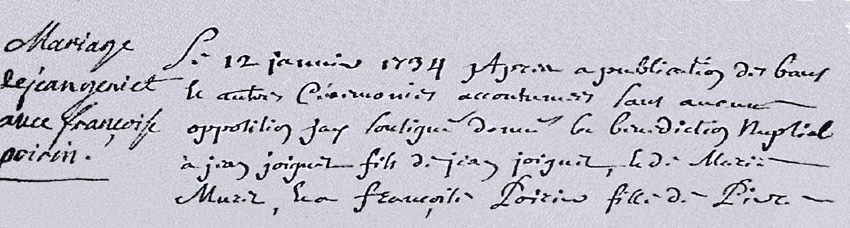 Mariage
de jean genict
avec françoise
poirin.
Le 12 janvier 1734 Apres a publication des bans
le autres Ceremonies accoutumees sans aucune
opposition jay soussigné donné la benediction Nuptial
à jean joignet fils de jean joignet, et de Marie
Muret, et a françoise Poirin fille de Pierre